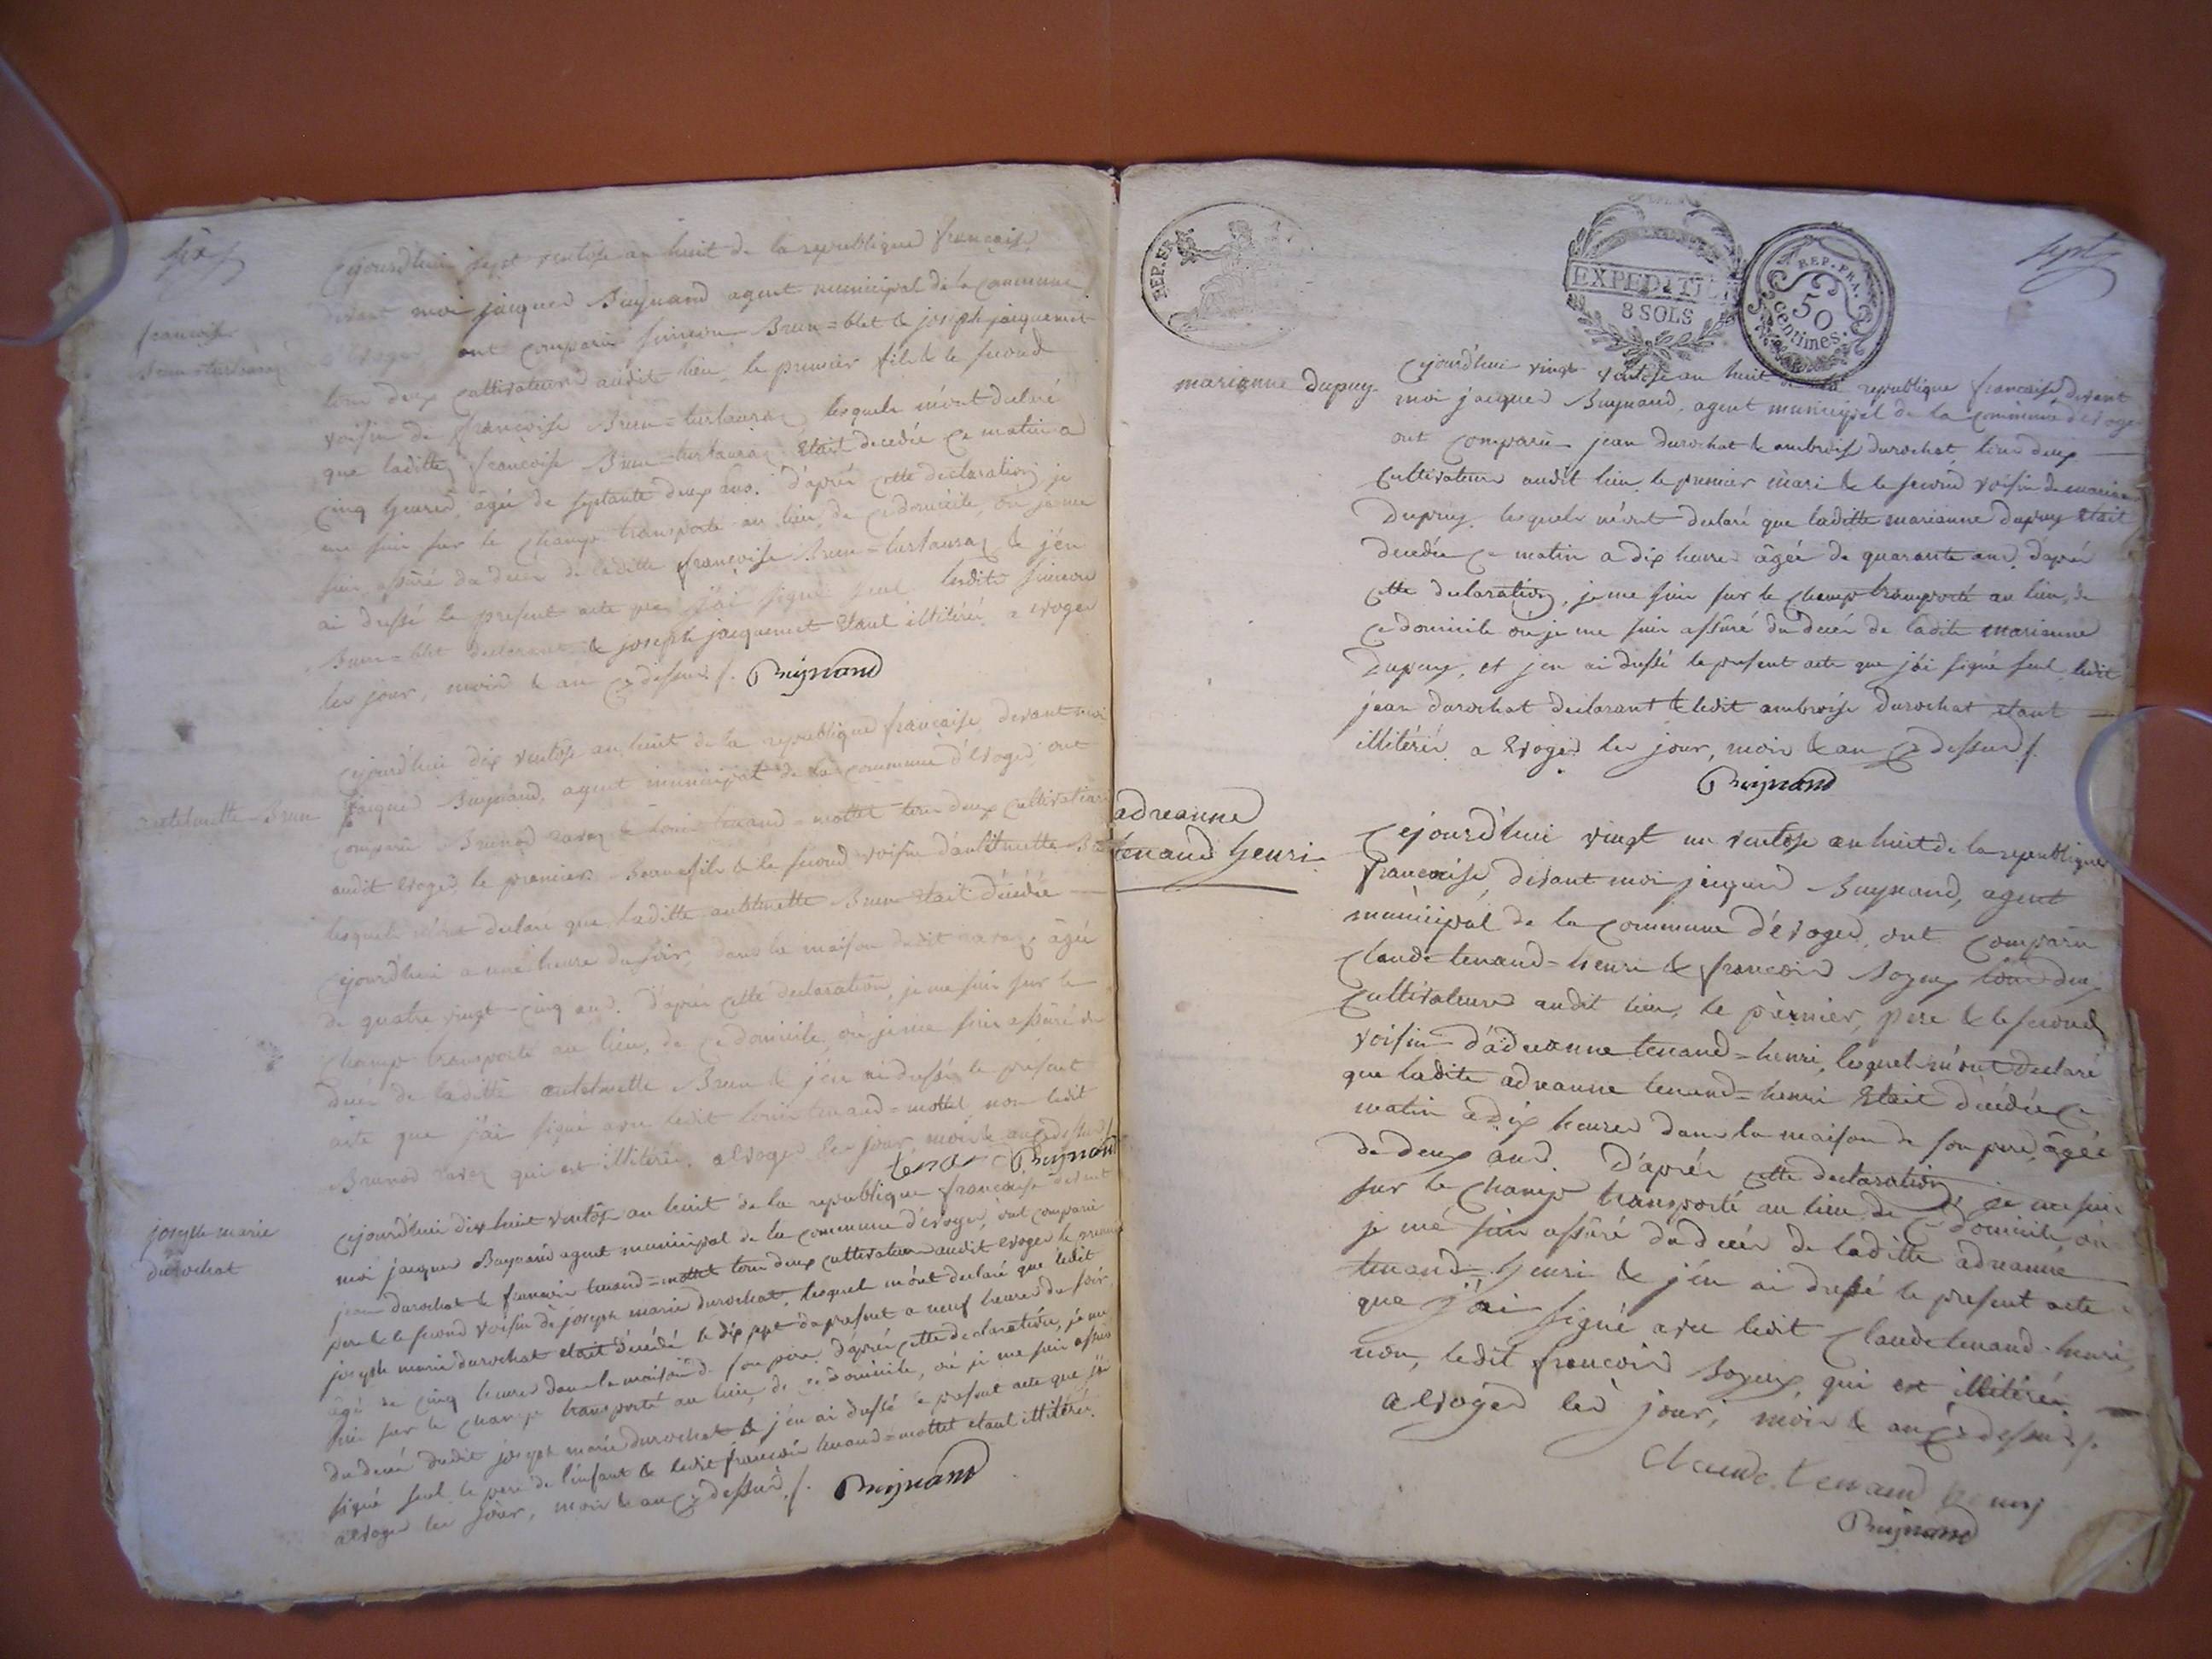 six
françoise
Brun-turlauraz
Cejourd'hui sept ventose an huit de la republique française
devant moi jacques Buynand agent municipal de la commune
d'Evoges ont comparu simeon Brun=blet & joseph jacquemet
tous deux cultivateurs audit lieu, le premier fils & le second
voisin de françoise Brun=turlauraz lesquels m'ont declaré
que laditte françoise Brun-turlauraz etait decedée ce matin a
cinq heures, âgée de septante deux ans. d'après cette declaration je
me suis sur le champ transporté au lieu de ce domicile, ou je me
suis assûré du decés de laditte françoise Brun=turlauraz & j'en
ai dressé le present acte que j'ai signé seul lesdits simeon
Brun=blet declarant & joseph jacquemet etant illitérés a evoges
les jour, mois & an cy dessus ./. Buynand
antelmette Brun
Cejourd'hui dix ventose an huit de la republique française, devant moi
jacques Buynand, agent municipal de la commune d'évoges, ont
comparu Brunod ravaz & louis tenand=mottet tous deux cultivateurs
audit evoges, le premier beaufils & le second voisin d'antelmette Brun
lesquels m'ont declaré que laditte antelmette Brun etait décédée
Cejourd'hui a une heure du soir, dans la maison dudit ravaz, âgée
de quatre vingt-cinq ans. D'après cette declaration, je me suis sur le
champ transporté au lieu de ce domicile, où je me suis assûré du
decés de laditte antelmette Brun & j'en ai dressé le present
acte que j'ai signé avec ledit louis tenand=mottet non ledit
Brunod ravaz qui est illitéré. a evoges les jour mois & an cy dessus ./.
tenan Buynand
joseph marie
durochat
Cejourd'hui dix huit ventose an huit de la republique française devant
moi jacques Buynand agent municipal de la commune d'évoges, ont comparu
jean durochat & françois tenand=mottet tous deux cultivateurs audit evoges le premier
pere & le second voisin de joseph marie durochat, lesquels m'ont declaré que ledit
joseph marie durochat etait décédé le dix sept du present a neuf heures du soir,
âgé de cinq heures dans la maison de son père. d'après cette declaration, je me
suis sur le champ transporté au lieu de ce domicile, où je me suis assûré
du decés dudit joseph marie durochat & j'en ai dressé le present acte que j'ai
signé seul le pere de l'enfant & ledit françois tenand=mottet etant illitérés.
a Evoges les jour, mois & an cy dessus ./. Buynand
REP. FRA.
EXPEDITI
8 SOLS
REP. FRA.
50
Centimes.
sept
marianne dupuy
Cejourd'hui vingt ventose an huit de la republique française devant
moi jacques Buynand, agent municipal de la commune d'évoges
ont comparu jean durochat & ambroise durochat tous deux
cultivateurs audit lieu, le premier mari & le second voisin de marianne
Dupuy, lesquels m'ont declaré que laditte marianne dupuy etait
decedée ce matin a dix heures âgée de quarante ans, d'après
cette declaration, je me suis sur le champ transporté au lieu de
ce domicile où je me suis assûré du decés de ladite marianne
Dupuy, et j'en ai dressé le present acte que j'ai signé seul, ledit
jean durochat declarant & ledit ambroise durochat etant
illitérés. a Evoges les jour, mois & an cy dessus ./.
Buynand
adreanne
tenand henri
Cejourd'hui vingt un ventose an huit de la republique
française, devant moi jacques Buynand, agent
municipal de la commune d'évoges, ont comparu
Claude tenand=henri & françois Soyeux tous deux
cultivateurs audit lieu, le pèrmier, pere & le second
voisin d'adreanne tenand=henri, lesquels m'ont declaré
que ladite adreanne tenand=henri etait décédée ce
matin a dix heures dans la maison de son pere, âgée
de deux ans. D'après cette declaration, je me suis
sur le champ transporté au lieu de ce domicile où
je me suis assûré du decés de laditte adreanne
tenand=henri & j'en ai dressé le present acte
que j'ai signé avec ledit Claude tenand-henri,
non, ledit françois Soyeux, qui est illitéré.
a Evoges les jour, mois & an cy dessus ./.
Claude tenand henry
Buynand